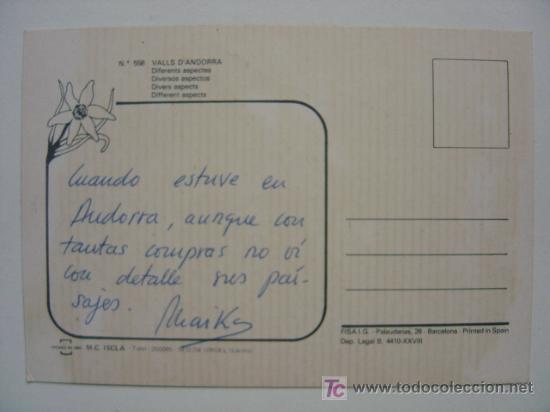 N.° 558 VALLS D'ANDORRA
Diferents aspectes
Diversos aspectos
Divers aspects
Different aspects
Cuando estuve en
Andorra, aunque con
tantas compras no vi
con detalle sus pai-
sajes. Maika
FISA I.G. - Palaudarias, 26 - Barcelona - Printed in Spain
Dep. Legal B. 4410-XXVIII
M.C. ISCLA
todocoleccion.net